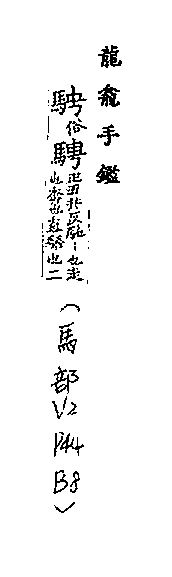 龍龕手鑑
俗騁正丑井反馳丨也走
也奔也直也二
(馬部V2 P44 B8)